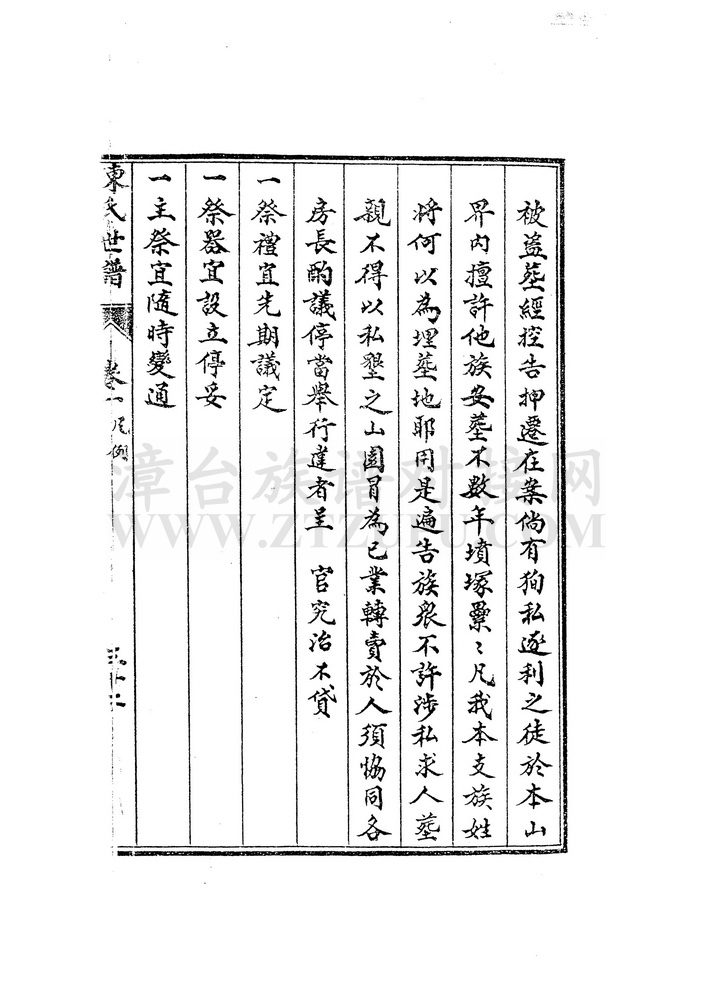 被盜塟經控告押遷在案倘有狥私逐利之徒於本山
界内擅許他族安塟不數年墳塚纍〻凡我本支族姓
将何以為埋塟地耶用是遍告族衆不許涉私求人塟
親不得以私墾之山園冒為己業轉賣於人須恊同各
房長酌議停當舉行違者呈　官究治不貸
一祭禮宜先期議定
一祭器宜設立停妥
一主祭宜隨時變通
陳氏世譜 卷一 凡例
漳台族谱对接网
WWW.ZTZUPU.COM